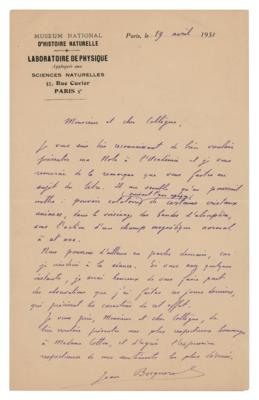 MUSEUM NATIONAL
D'HISTOIRE NATURELLE
LABORATOIRE DE PHYSIQUE
Appliquée aux
SCIENCES NATURELLES
57, Rue Cuvier
PARIS 5e
Paris, le 19 avril 1931
Monsieur et cher Collègue,
Je vous suis très reconnaissant de bien vouloir
présenter ma Note à l'Académie et je vous
remercie de la remarque que vous faites au
sujet du titre. Il me semble qu'on pourrait
mettre : pouvoir rotatoire de certains cristaux
uniaxes, dans le voisinage des bandes d'absorption,
sous l'action d'un champ magnétique normal
à cet axe.
Nous pourrons d'ailleurs en parler demain, car
j'irai à la séance. Si vous avez quelques
instants, je serai heureux de vous faire part
des observations que j'ai faites ces jours derniers,
qui précisent les caractères de cet effet.
Je vous prie, Monsieur et cher Collègue, de
bien vouloir présenter mes plus respectueux hommages
à Madame Cotton, et d'agréer l'expression
respectueuse de mes sentiments les plus dévoués.
Jean Becquerel